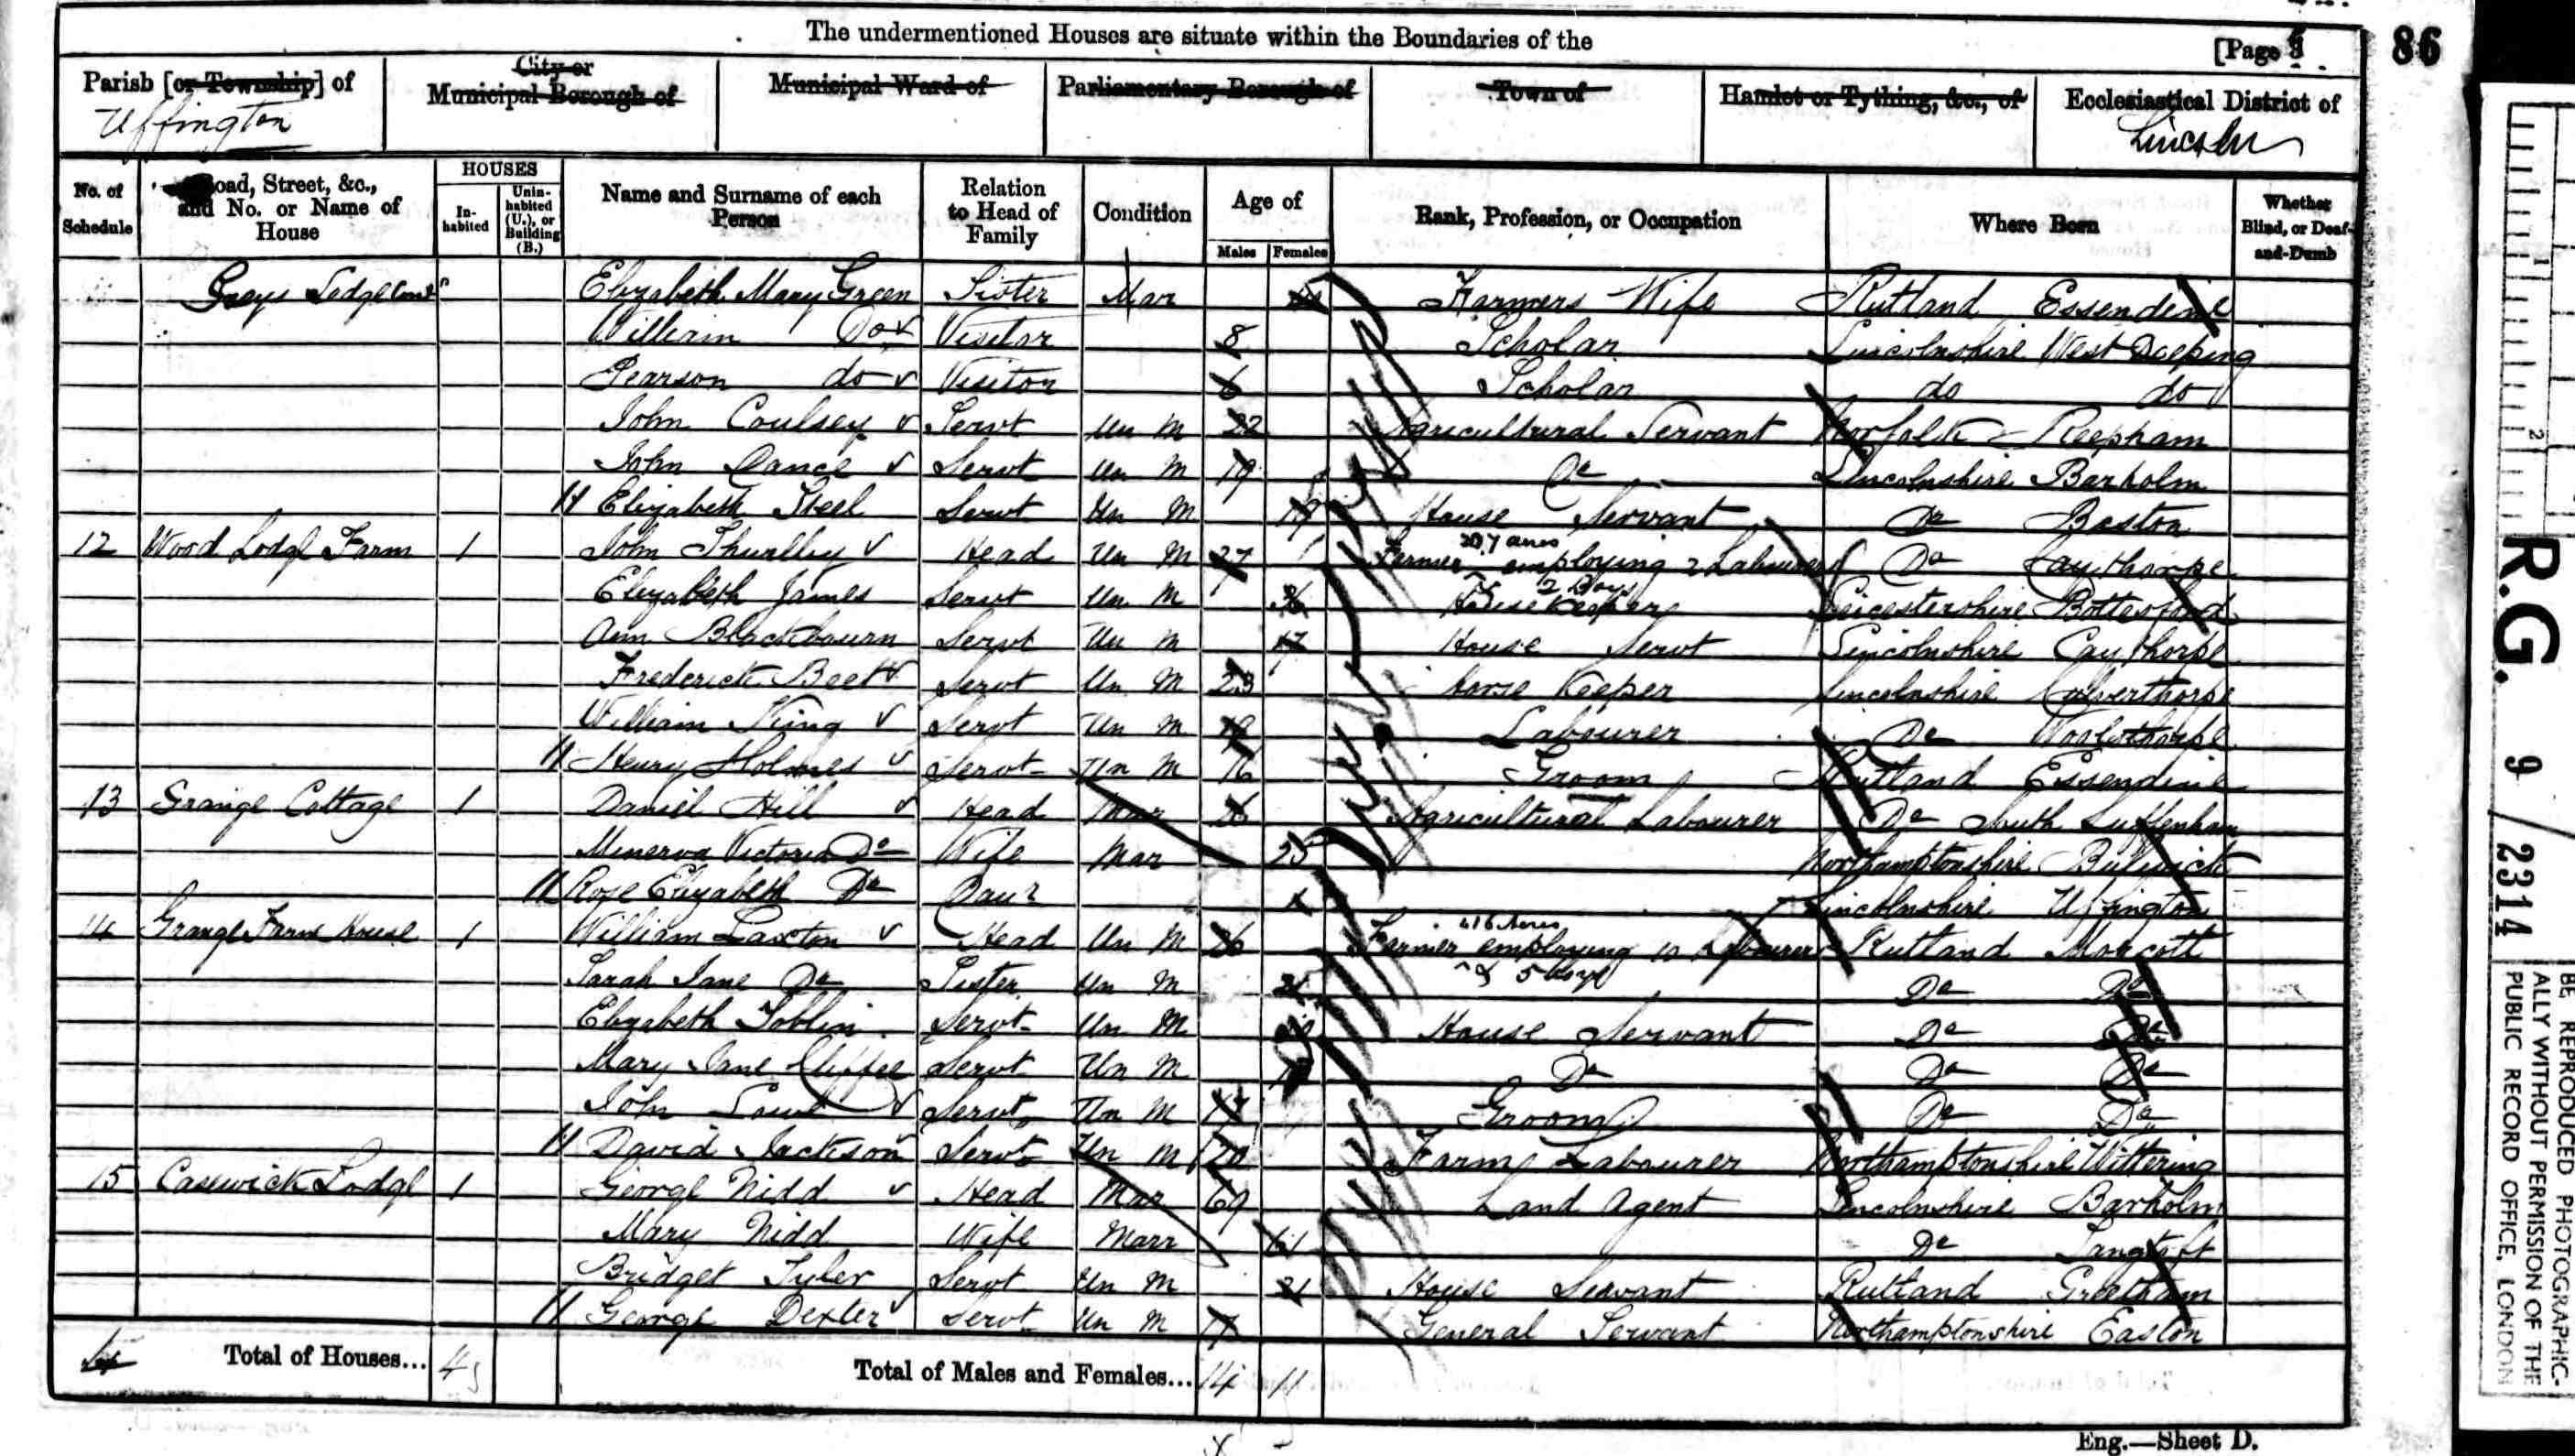 The undermentioned Houses are situate within the Boundaries of the
[Page
86
Parish [or Township] of
Uffington
City or
Municipal Borough of
Municipal Ward of
Parliamentary Borough of
Town of
Hamlet or Tything, &c., of
Ecclesiastical District of
Lincoln
No. of Schedule
Road, Street, &c., and No. or Name of House
HOUSES
In-habited
Unin-habited (U.), or Building (B.)
Name and Surname of each Person
Relation to Head of Family
Condition
Age of
Males
Females
Rank, Profession, or Occupation
Where Born
Whether Blind, or Deaf-and-Dumb
Greys Lodge Elizabeth Mary Green Sister Mar Farmers Wife Rutland Essendine
William Do Visitor 8 Scholar Lincolnshire West Deeping
Pearson do Visitor 6 Scholar do do
John Coulsey Servt Un M 22 Agricultural Servant Norfolk Reepham
John Dance Servt Un M 19 Do Lincolnshire Barholm
Elizabeth Steel Servt Un M 19 House Servant Do Baston
12 Wood Lodge Farm 1 John Thurlley Head Un M 27 Farmer 207 acres employing 2 Labourers & 2 Boys Do Caythorpe
Elizabeth James Servt Un M House Keeper Leicestershire Bottesford
Ann Blackbourn Servt Un M 17 House Servt Lincolnshire Caythorpe
Frederick Beet Servt Un M 23 Horse Keeper Lincolnshire Culverthorpe
William King Servt Un M 19 Labourer Do Woolsthorpe
Henry Holmes Servt Un M 16 Groom Rutland Essendine
13 Grange Cottage 1 Daniel Hill Head Mar 26 Agricultural Labourer Do South Luffenham
Minerva Victoria Do Wife Mar 25 Northamptonshire Bulwick
Rose Elizabeth Do Daur 1 Lincolnshire Uffington
14 Grange Farm House 1 William Laxton Head Un M 26 Farmer 416 Acres employing 10 Labourers & 5 boys Rutland Morcott
Sarah Jane Do Sister Un M 21 Do Do
Elizabeth Toblin Servt Un M House Servant Do Do
Mary Jane Cliffe Servt Un M Do Do Do
John Servt Un M 17 Groom Do Do
David Jackson Servt Un M 20 Farm Labourer Northamptonshire Wittering
15 Casewick Lodge 1 George Nidd Head Mar 69 Land Agent Lincolnshire Barholm
Mary Nidd Wife Marr 61 Do Langtoft
Bridget Tyler Servt Un M 21 House Servant Rutland Greetham
George Dexter Servt Un M 17 General Servant Northamptonshire Easton
Total of Houses... 4
Total of Males and Females... 14 11
Eng.—Sheet D.
R.G. 9 / 2314
BE REPRODUCED PHOTOGRAPHIC-
ALLY WITHOUT PERMISSION OF THE
PUBLIC RECORD OFFICE, LONDON